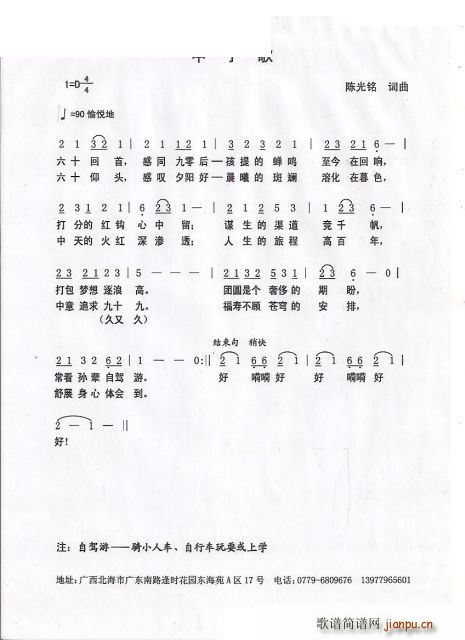 1=D 4/4
陈光铭 词曲
♩=90 愉悦地
2 1 3 2 1 | 2 1 1 2 1 | 3 2 3 2 3 | 2 3 2 1 6 — |
六十回首， 感同九零后—孩提的蝉鸣 至今在回响，
六十仰头， 感叹夕阳好—晨曦的斑斓 溶化在暮色，
打分的红钩 心中留； 谋生的渠道 竞千帆，
中天的火红 深渗透； 人生的旅程 高百年，
2 3 2 3 5 1 2 3 | 5 — — — |
打包梦想逐浪高。 团圆是个奢侈的 期盼，
中意追求九十九。 福寿不顾苍穹的 安排，
（久又久）
结束句 稍快
常看孙辈自驾游。 好 嗬嗬好 好 嗬嗬好
舒展身心体会到。
2 — 1 — ‖
好！
注：自驾游——骑小人车、自行车玩耍或上学
地址：广西北海市广东南路逢时花园东海苑A区17号 电话：0779-6809676 13977965601
歌谱简谱网
jianpu.cn